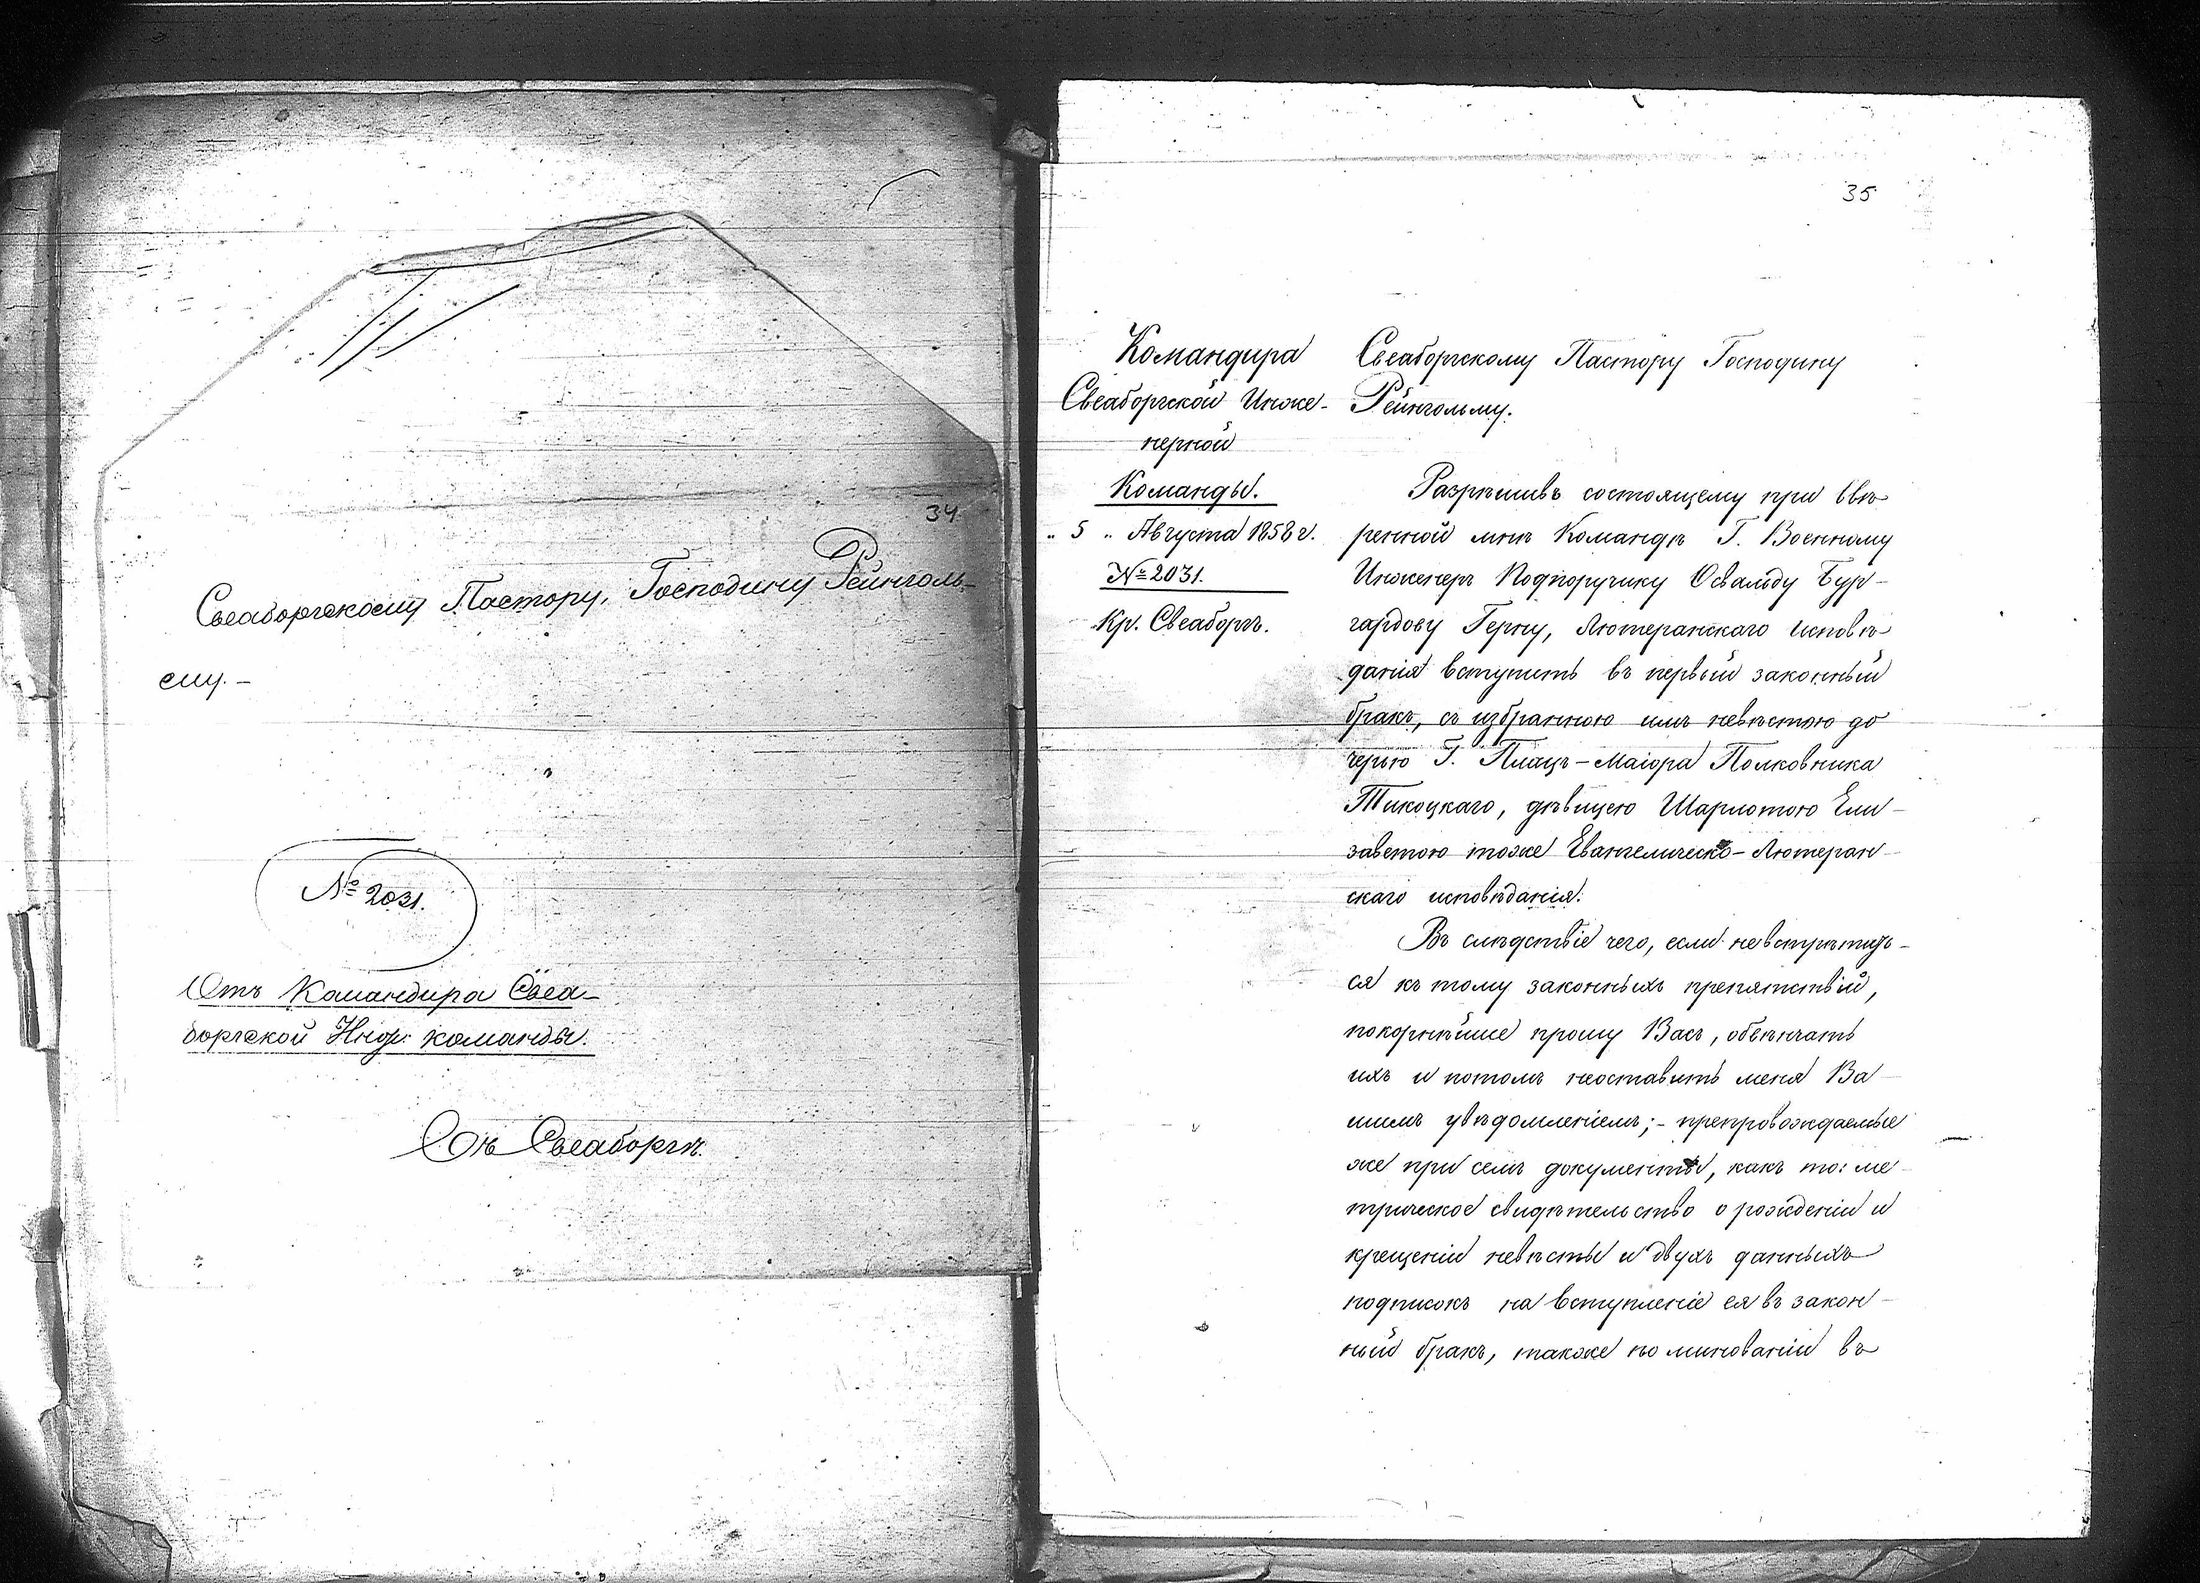 34
Свеаборгскому Пастору, Господину Рейнголь-
ему.-
№ 2031.
Отъ Командира Свеа-
боргской Инж: команды.
Въ Свеаборгѣ.
35
Командира
Свеаборгской Инже-
нерной
Команды.
„ 5 „ Августа 1858 г.
№ 2031.
Кр. Свеаборгъ.
Свеаборгскому Пастору Господину
Рейнгольму.
Разрѣшивъ состоящему при ввѣ
ренной мнѣ Командѣ Г. Военному
Инженеръ Подпоручику Освальду Бур-
гардову Герну, Лютеранскаго исповѣ
данія вступить въ первый законный
бракъ, съ избранною имъ невѣстою до
черью Г. Плацъ-Маіора Полковника
Тикоцкаго, дѣвицею Шарлотою Ели-
заветою тоже Евангелическо-Лютеран-
скаго исповѣданія.
Въ слѣдствіе чего, если невстрѣтит-
ся къ тому законныхъ препятствій,
покорнѣйше прошу Васъ, обвѣнчать
ихъ и потомъ неоставить меня Ва-
шимъ увѣдомленіемъ;- препровождаемые
же при семъ документы, какъ то: ме-
трическое свидѣтельство о рожденіи и
крещеніи невѣсты и двухъ данныхъ
подписокъ на вступленіе ея въ закон-
ный бракъ, также по минованіи въ